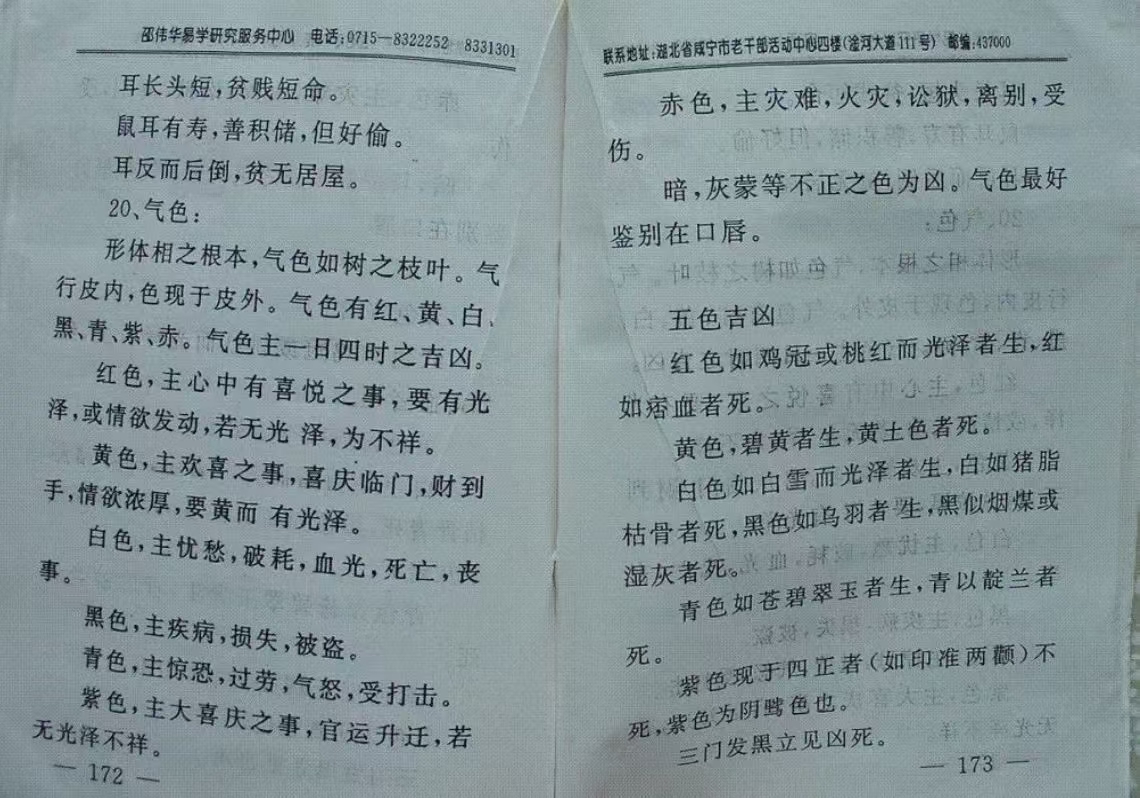 邵伟华易学研究服务中心 电话:0715—8322252 8331301
耳长头短,贫贱短命。
鼠耳有寿,善积储,但好偷。
耳反而后倒,贫无居屋。
20、气色:
形体相之根本,气色如树之枝叶。气
行皮内,色现于皮外。气色有红、黄、白、
黑、青、紫、赤。气色主一日四时之吉凶。
红色,主心中有喜悦之事,要有光
泽,或情欲发动,若无光 泽,为不祥。
黄色,主欢喜之事,喜庆临门,财到
手,情欲浓厚,要黄而 有光泽。
白色,主忧愁,破耗,血光,死亡,丧
事。
黑色,主疾病,损失,被盗。
青色,主惊恐,过劳,气怒,受打击。
紫色,主大喜庆之事,官运升迁,若
无光泽不祥。
— 172 —
联系地址:湖北省咸宁市老干部活动中心四楼(淦河大道111号) 邮编:437000
赤色,主灾难,火灾,讼狱,离别,受
伤。
暗,灰蒙等不正之色为凶。气色最好
鉴别在口唇。
五色吉凶
红色如鸡冠或桃红而光泽者生,红
如痞血者死。
黄色,碧黄者生,黄土色者死。
白色如白雪而光泽者生,白如猪脂
枯骨者死,黑色如乌羽者生,黑似烟煤或
湿灰者死。
青色如苍碧翠玉者生,青以靛兰者
死。
紫色现于四正者(如印准两颧)不
死,紫色为阴骘色也。
三门发黑立见凶死。
— 173 —